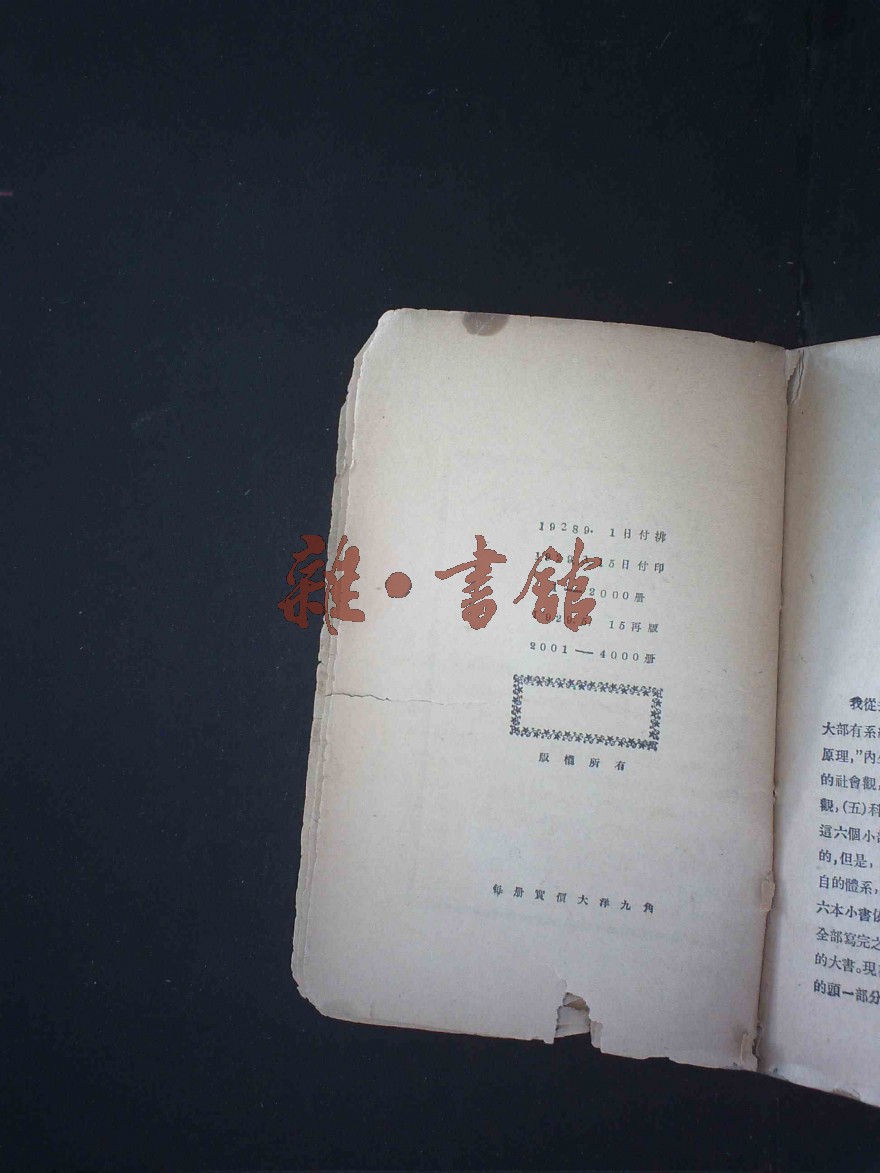 19289. 1日付排
15日付印
2000册
15再版
2001—4000册
版權所有
每册實價大洋九角
雜·書館
我從
大部有系
原理,”內
的社會觀,
觀,(五)科
這六個小
的,但是,
自的體系,
六本小書
全部寫完之
的大書。現
的頭一部分